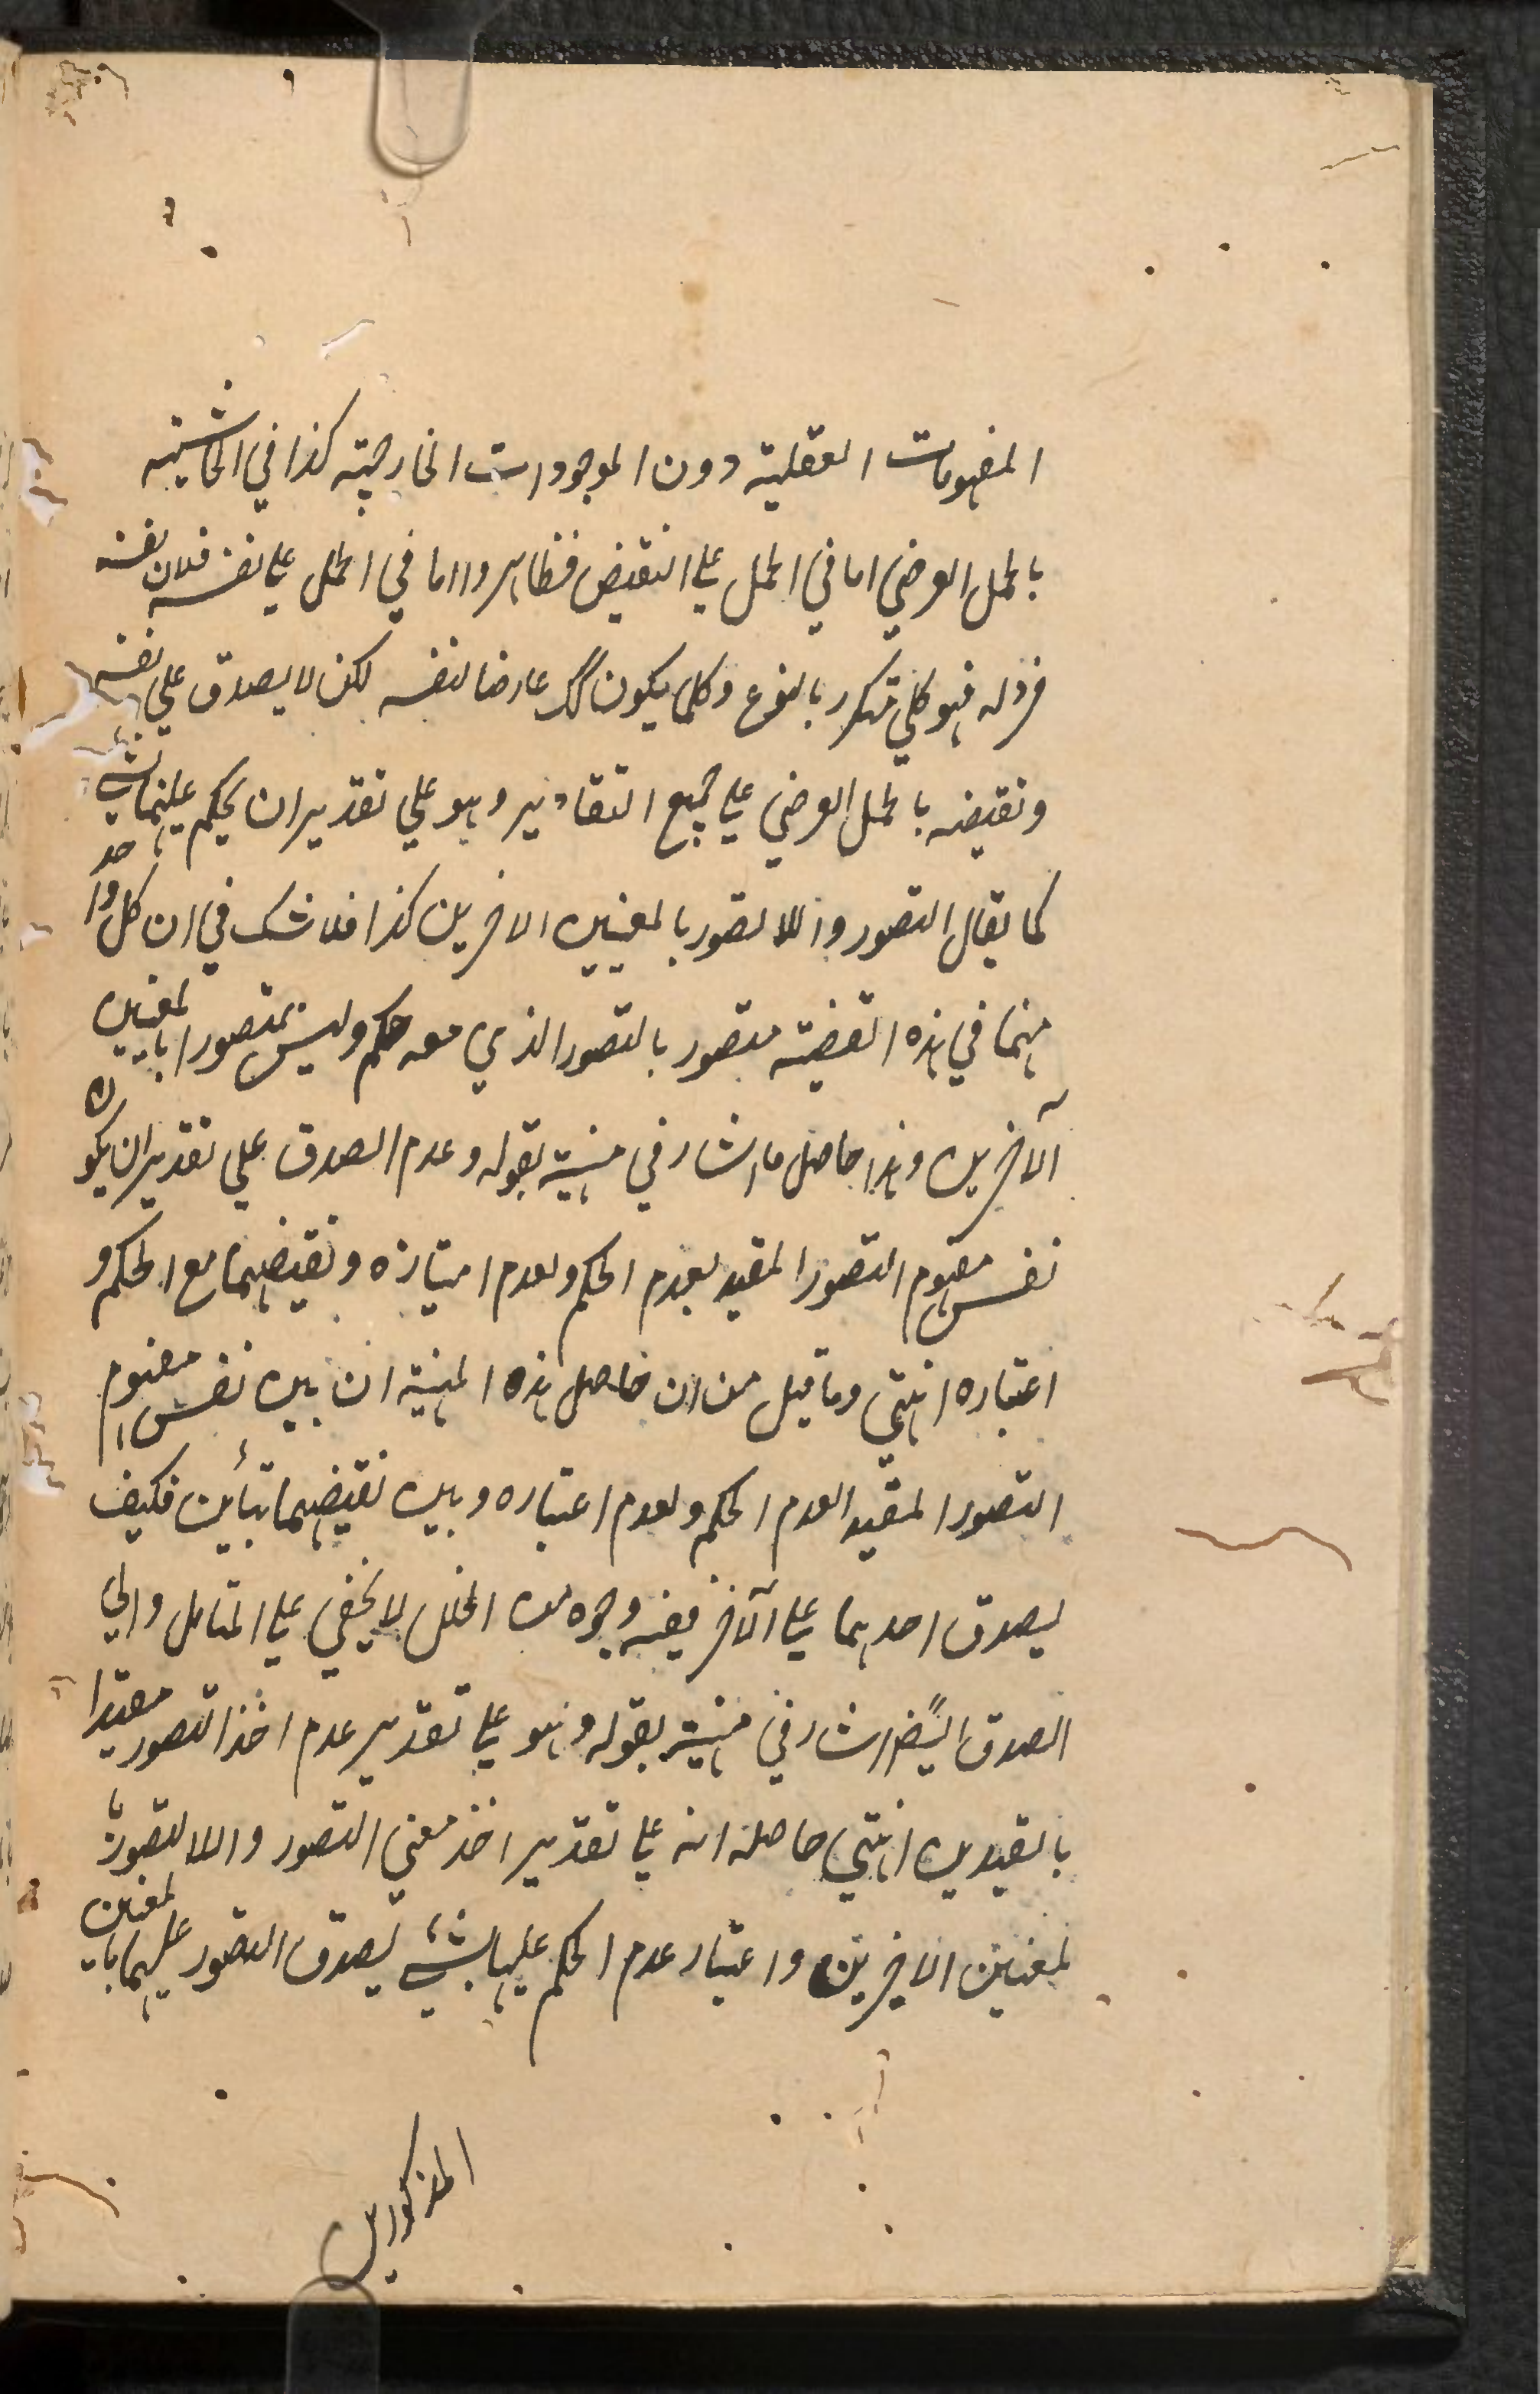 المفهومات العقلية دون الموجودات الخارجية كذا في الحاشية
بالحمل العرضي اما في الحمل على النقيض فظاهر واما في الحمل على نفسه فلان نفسه
فرد له فهو كلي متكرر بالنوع وكلما يكون كك عارضا لنفسه لكن لا يصدق على نفسه
ونقيضه بالحمل العرضي على جميع التقادير وهو على تقدير ان يحكم عليهما بشئ
كما يقال التصور واللا تصور بالمعنيين الاخرين كذا فلا شك في ان كل واحد
منهما في هذه القضية متصور بالتصور الذي معه حكم وليس بمتصور بالمعنيين
الآخرين وهذا حاصل ما اشار في منهية بقوله وعدم الصدق على تقدير ان يكون
نفس مفهوم التصور المقيد بعدم الحكم وبعدم اعتباره ونقيضهما مع الحكم و
اعتباره انتهى وما قيل من ان حاصل هذه المنهية ان بين نفس مفهوم
التصور المقيد بعدم الحكم وبعدم اعتباره وبين نقيضهما تبأين فكيف
يصدق احدهما على الآخر ففيه وجوه من الخلل لا يخفى على المتأمل والى
الصدق ايضًا اشار في منهية بقوله وهو على تقدير عدم اخذ التصور مقيدا
بالقيدين انتهى حاصله انه على تقدير اخذ معنى التصور واللا تصور با
لمعنيين الاخيرين واعتبار عدم الحكم عليها بشئ يصدق التصور عليهما بالمعنيين
المذكورين